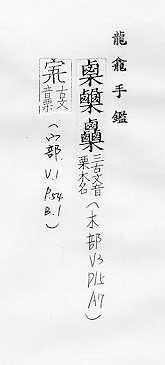 龍龕手鑑
三古文音
栗木名
(木部
V3
P15
A7)
古文
音栗
(宀部
V.1
P.54
B.1)